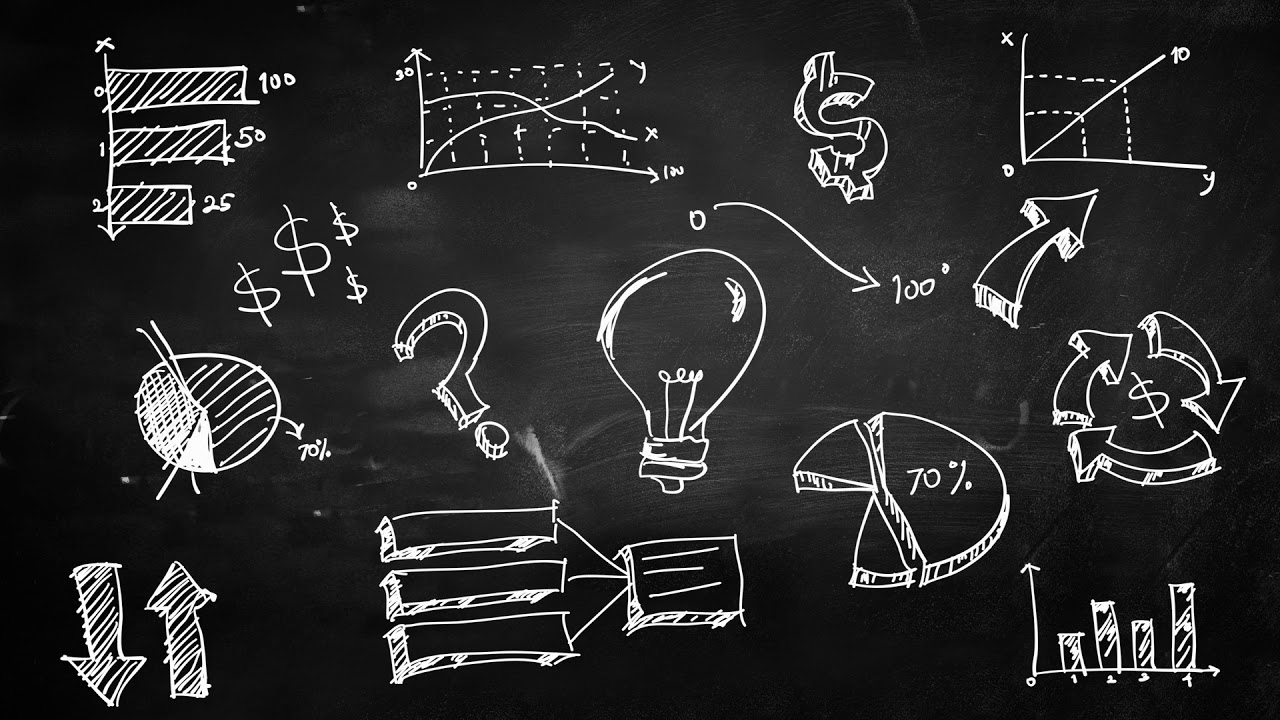 x
0
100
1
50
2
25
30
y
x
0
100
$
x
10
0
y
0
100°
$
$
$
$
$
70%
70%
0
1
2
3
4